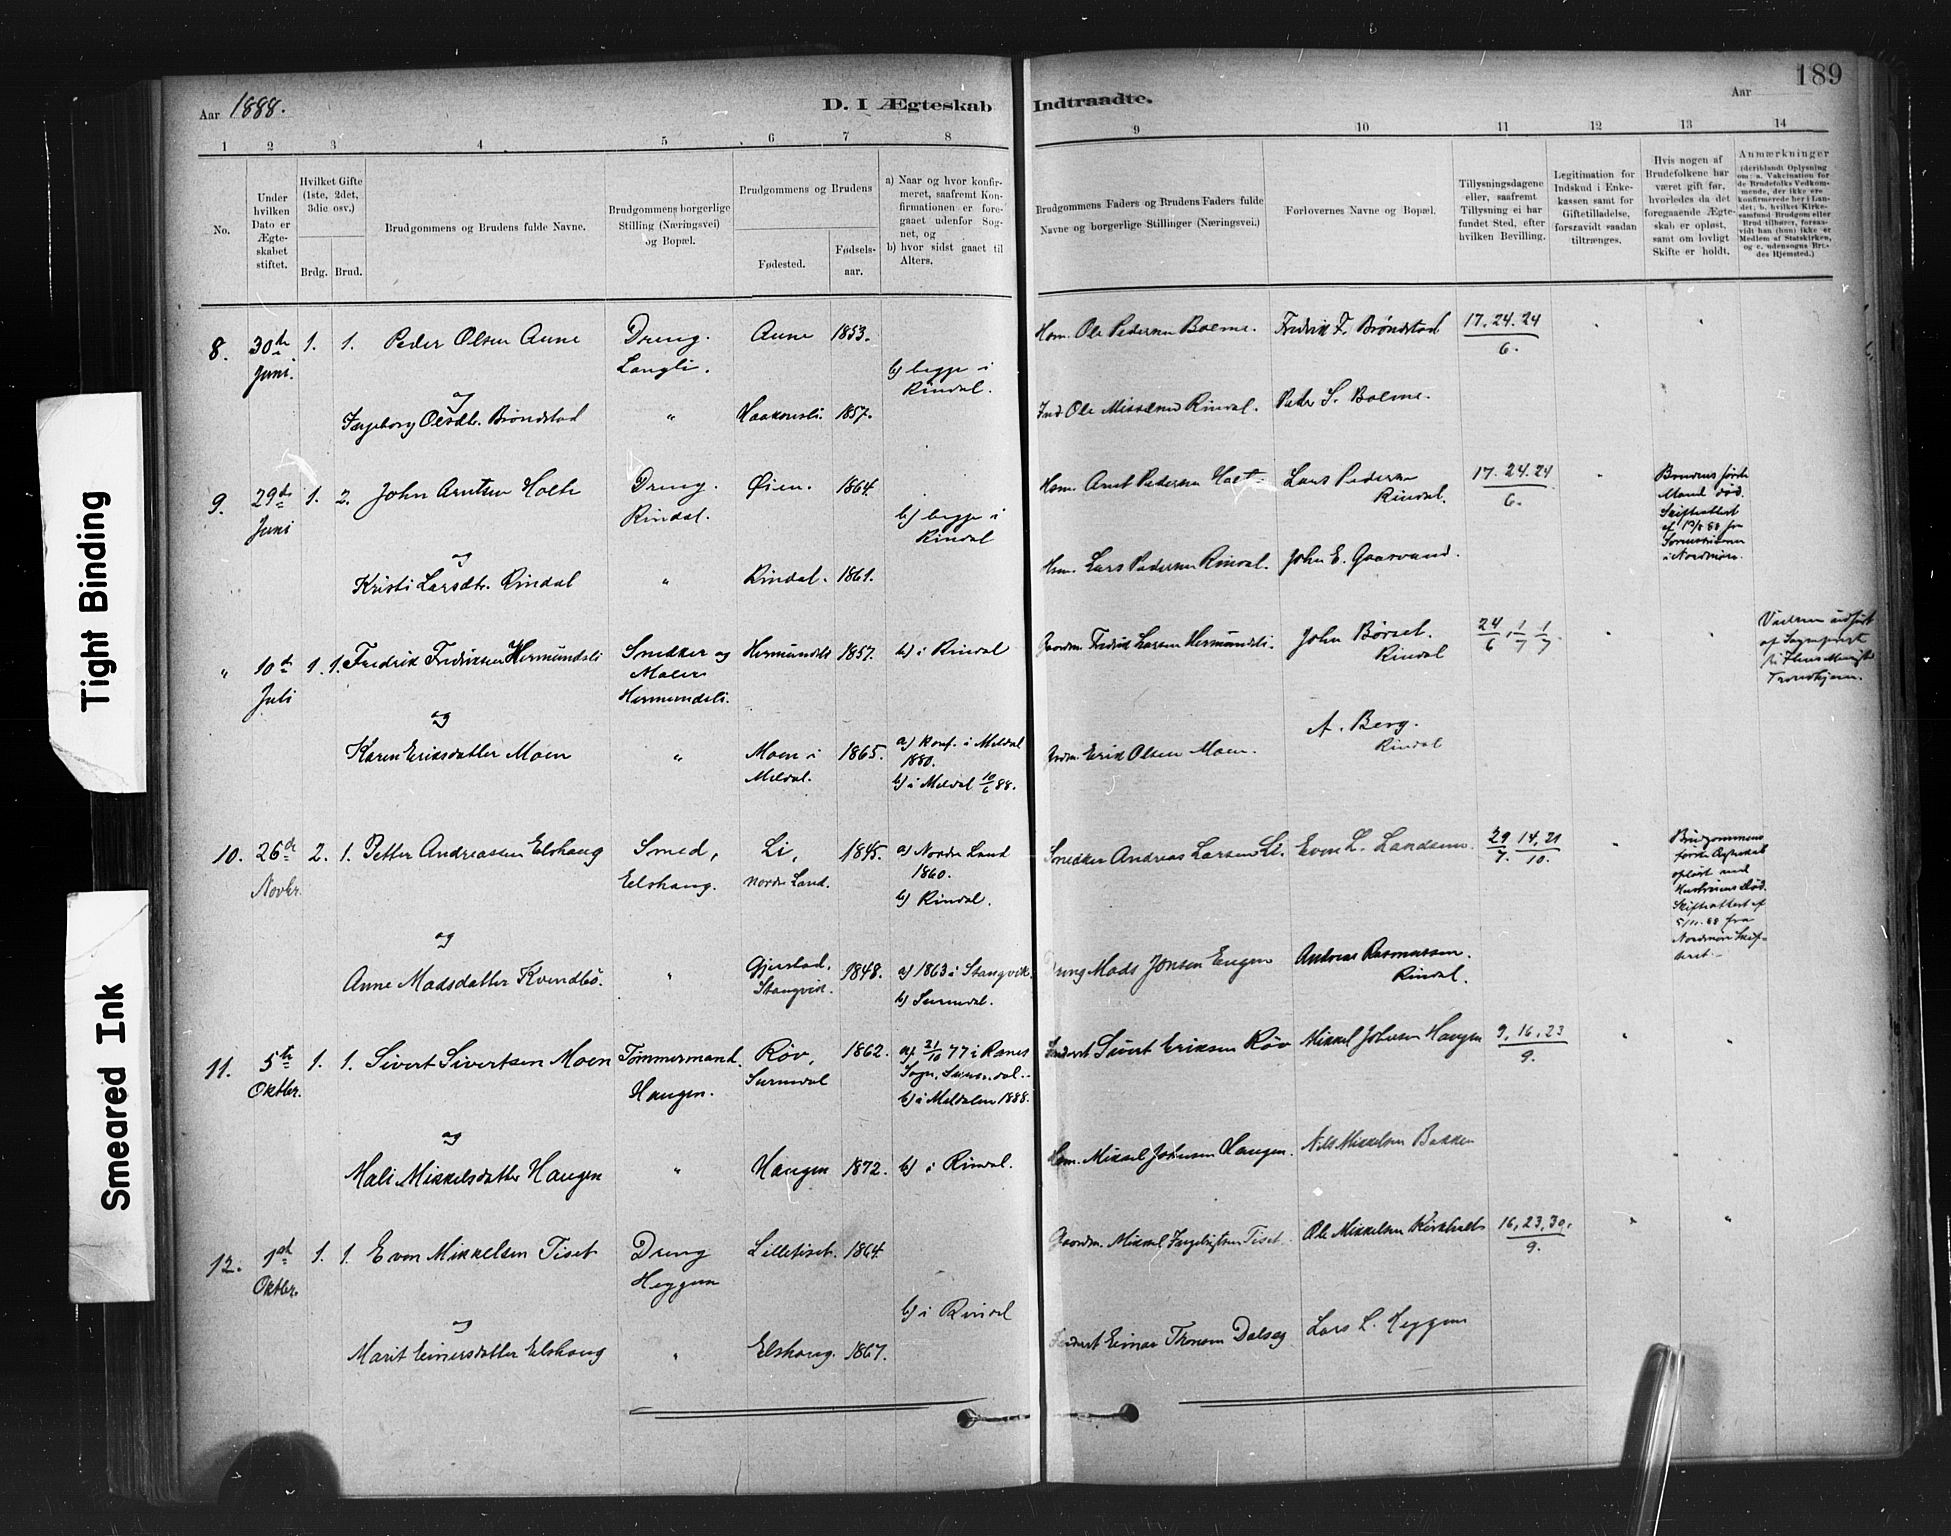 189
Aar 1888.
D. I Ægteskab Indtraadte.
Aar
1 2 3 4 5 6 7 8 9 10 11 12 13 14
No.
Under hvilken Dato er Ægteskabet stiftet.
Hvilket Gifte (1ste, 2det, 3die osv.)
Brdg. Brud.
Brudgommens og Brudens fulde Navne.
Brudgommens borgerlige Stilling (Næringsvei) og Bopæl.
Brudgommens og Brudens
Fødested.
Fødselsaar.
a) Naar og hvor konfirmeret, saafremt Konfirmationen er foregaaet udenfor Sognet, og
b) hvor sidst gaaet til Alters.
Brudgommens Faders og Brudens Faders fulde Navne og borgerlige Stillinger (Næringsvei.)
Forlovernes Navne og Bopæl.
Tillysningsdagene eller, saafremt Tillysning ei har fundet Sted, efter hvilken Bevilling.
Legitimation for Indskud i Enkekassen samt for Giftetilladelse, forsaavidt saadan tiltrænges.
Hvis nogen af Brudefolkene har været gift før, hvorledes da det foregaaende Ægteskab er opløst, samt om lovligt Skifte er holdt.
Anmærkninger
(deriblandt Oplysning om: a. Vakcination for de Brudefolks Vedkommende, der ikke ere konfirmerede her i Landet; b. hvilket Kirkesamfund Brudgom eller Brud tilhører, forsaavidt han (hun) ikke er Medlem af Statskirken, og c. udensogns Brudes Hjemsted.)
8. 30de Juni. 1. 1. Peder Olsen Aune Dreng. Langli. Aune 1853. b) begge i Rindal. Hsm. Ole Pedersen Bolme. Fredrik F. Brøndstad 17. 24. 24 / 6.
og
Ingeborg Olsdtr. Brøndstad " Haakonsli. 1857. Ind. Ole Rindal. Peder S. Bolme.
9. 29de Juni 1. 2. John Arntsen Holte Dreng. Rindal. Øien. 1864. b) begge i Rindal Hsm. Arnt Pedersen Holt Lars Pedersen Rindal. 17. 24. 24 / 6. Brudens første Mand død. Skifteattest af 13/6 88 fra Sorenskriveren i Nordmøre.
og
Kristi Larsdtr. Rindal " Rindal. 1861. Hsm. Lars Pedersen Rindal. John E. Gaasvand.
" 10de Juli 1. 1. Fredrik Fredriksen Hermundsli Snedker og Maler Hermundsli. Hermundsli 1857. b) i Rindal Gaardm. Fredrik Larsen Hermundsli. John Børset. Rindal 24/6, 1/7 1/7 Vielsen udført af Sognepræst til Trondhjem.
og
Karen Eriksdatter Moen " Moen i Meldal. 1865. a) konf. i Meldal 1880. b) i Meldal 10/6 88. Grdm. Erik Olsen Moen. A. Berg. Rindal
10. 26de Novbr. 2. 1. Petter Andreassen Elshaug Smed, Elshaug. Li, Nordre Land. 1845. a) Nordre Land 1860. b) Rindal. Snedker Andreas Larsen Li. Even L. Landsem. 29/7. 14, 21 / 10. Brudgommens første Ægteskab opløst ved Hustruens Død. Skifteattest af 5/11. 88 fra Nordmøre Skifteret.
og
Anne Madsdatter Kvendbø. " Gjerstad, Stangvik. 1848. a) 1863 i Stangvik. b) Surndal. Dreng Mads Jonsen Engen Andreas Rasmussen. Rindal.
11. 5te Oktbr. 1. 1. Sivert Sivertsen Moen Tømmermand. Haugen. Røv, Surndal 1862. a) 21/10 77 i Ranes Sogn, Surendal. b) i Meldalen 1888. Inderst Sivert Eriksen Røv Mikkel Johnsen Haugen 9, 16, 23 / 9.
og
Mali Mikkelsdatter Haugen " Haugen 1872. b) i Rindal. Hsm. Mikkel Johnsen Haugen. Nils Mikkelsen Bakken
12. 1st Oktbr. 1. 1. Even Mikkelsen Tiset Dreng Heggem Lilletiset. 1864. b) i Rindal Gaardm. Mikkel Ingebrigtsen Tiset. Ole Mikkelsen Kirkholt 16, 23, 30. / 9.
og
Marit Einersdatter Elshaug " Elshaug. 1867. Inderst Einar Tronsen Dalseg Lars L. Heggem
Tight Binding
Smeared Ink